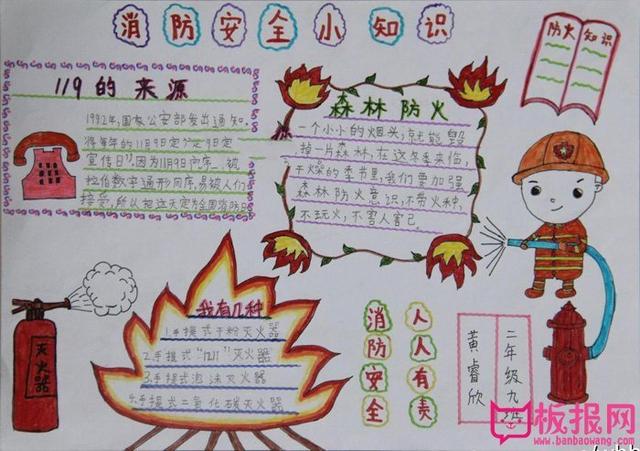 消防安全小知识
防火知识
119的来源
1992年,国家公安部发出通知,
将每年的11月9日定为
宣传日",因为11月9日
接受,所以把这天定为全国消防日
森林防火
一个小小的烟头,就能毁
掉一片森林,在这冬季来临,
干燥的季节里,我们要加强
森林防火意识,不带火种,
不玩火,不害人害己.
灭火器
我有几种
1.手提式干粉灭火器
2.手提式"1211"灭火器
3.手提式泡沫灭火器
4.手提式二氧化碳灭火器
消防安全
人人有责
二年级九班
黄睿欣
板报网
www.banbaowang.com